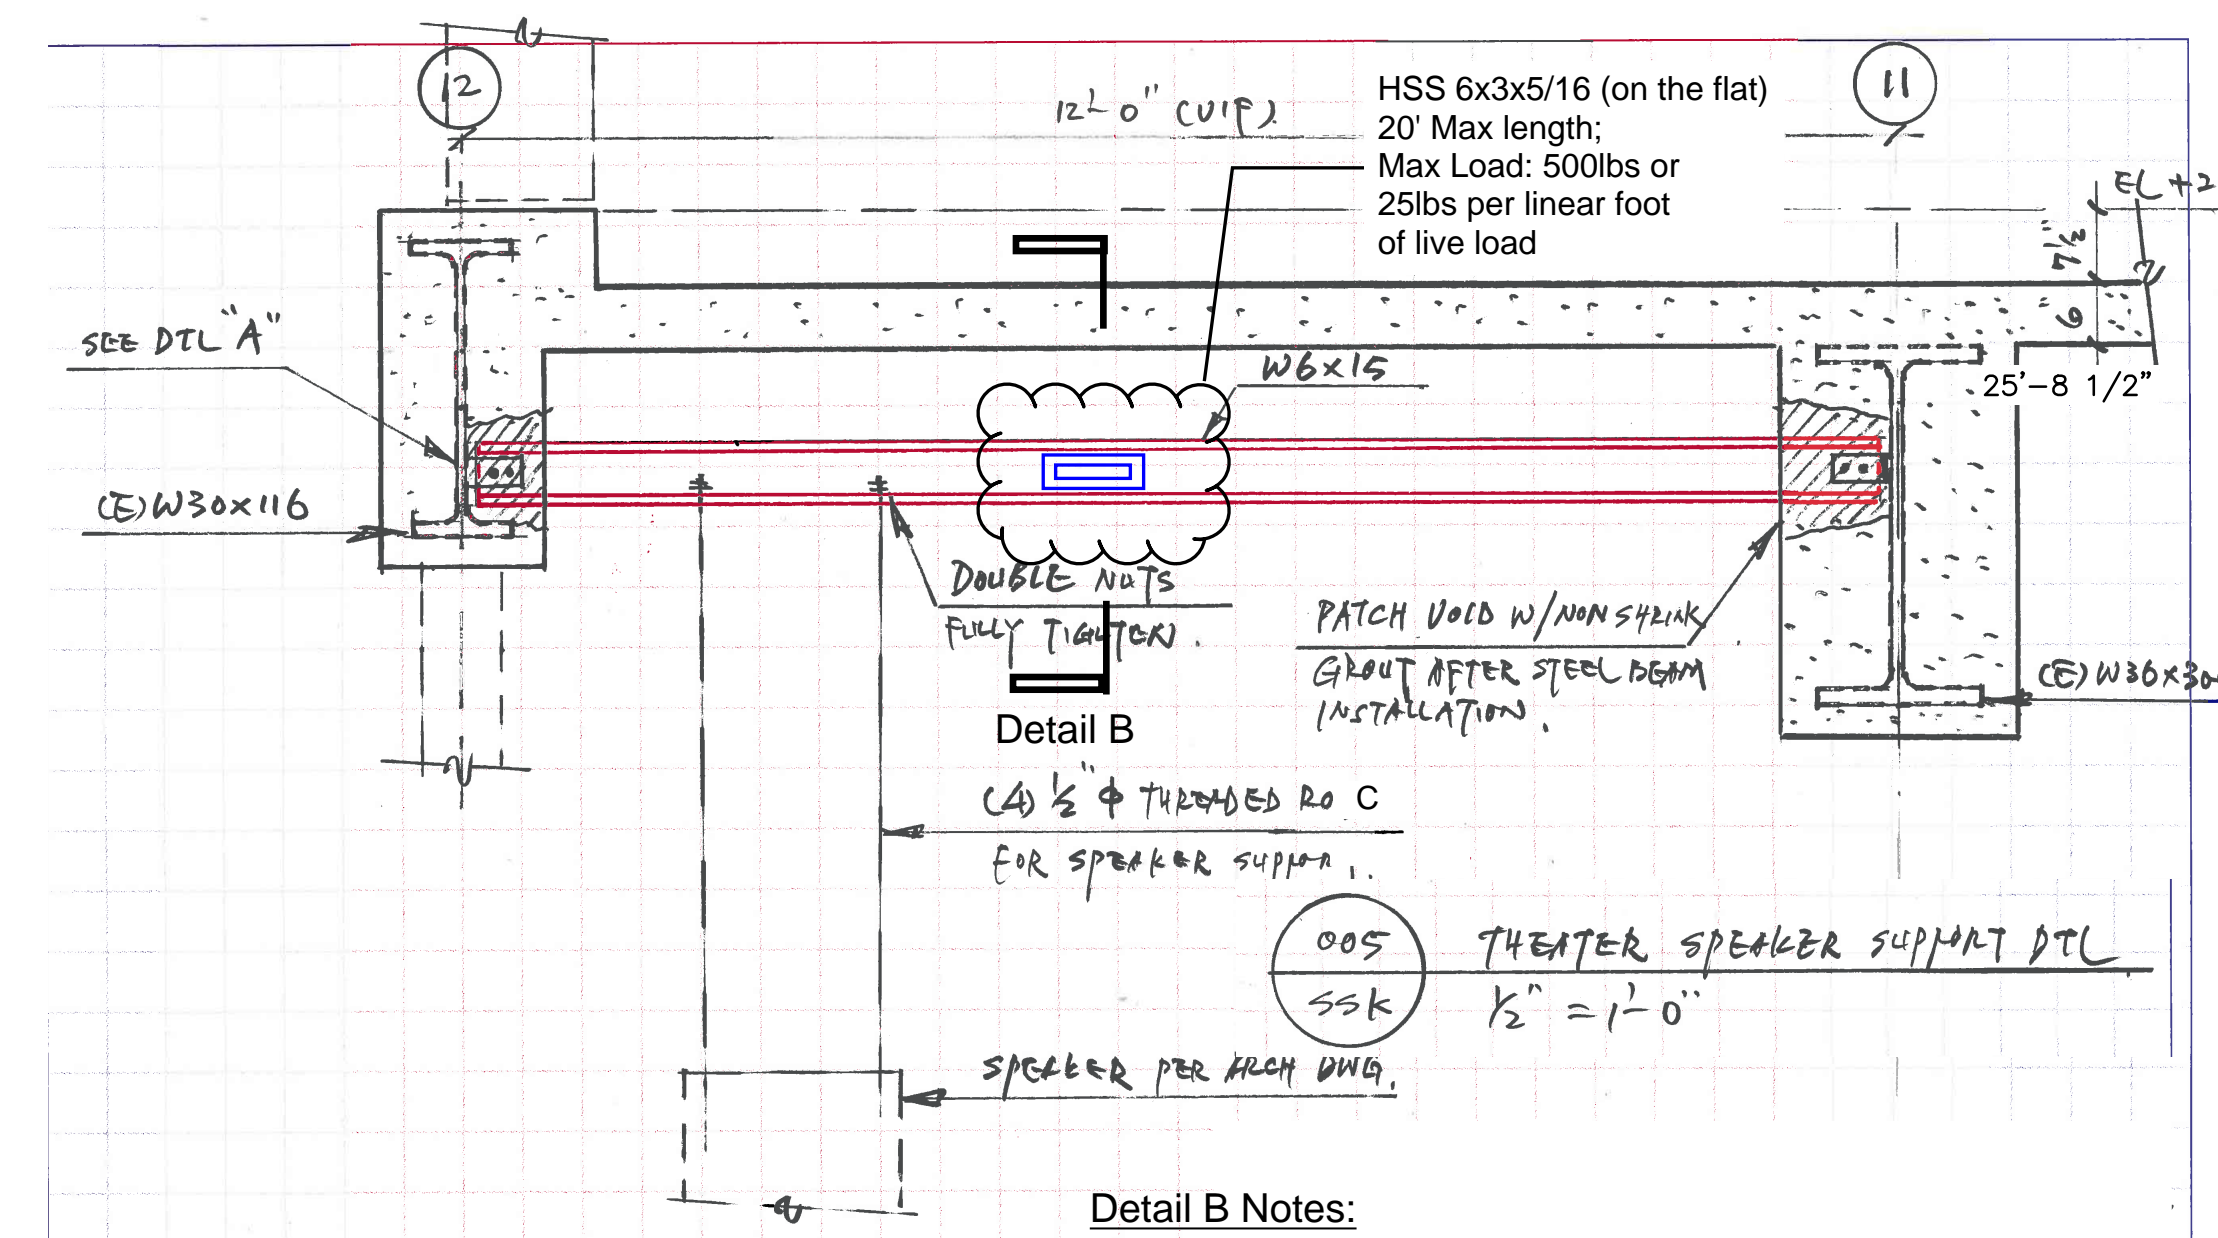 12
12'-0" (VIF).
HSS 6x3x5/16 (on the flat)
20' Max length;
Max Load: 500lbs or
25lbs per linear foot
of live load
11
EL +2
7 1/2"
6"
25'-8 1/2"
SEE DTL "A"
W6x15
(E) W30x116
DOUBLE NUTS
FULLY TIGHTEN.
PATCH VOID W/NON SHRINK
GROUT AFTER STEEL BEAM
INSTALLATION.
(E) W36x30
Detail B
(4) 1/2" φ THREADED RO C
FOR SPEAKER
005
SSK
THEATER SPEAKER SUPPORT DTL
1/2" = 1'-0"
SPEAKER PER ARCH DWG.
Detail B Notes: